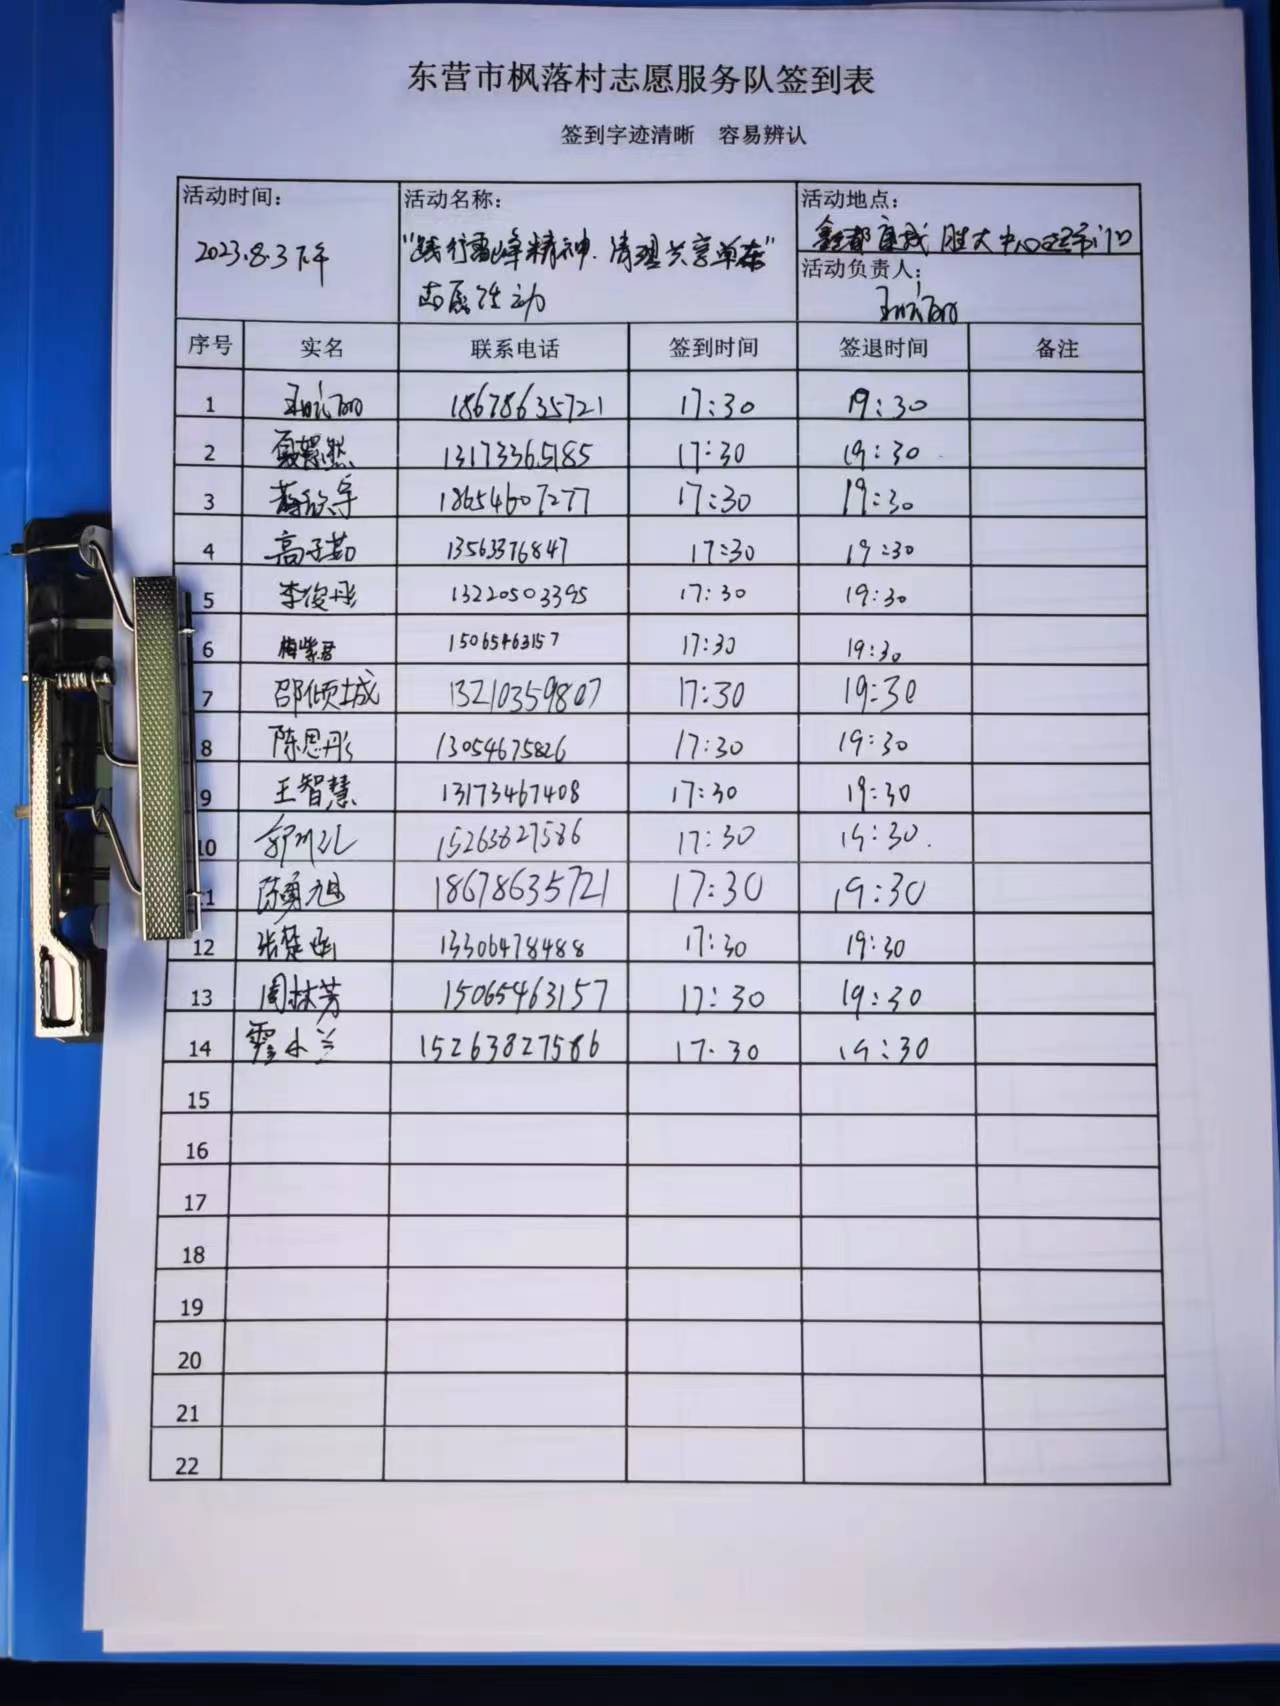 东营市枫落村志愿服务队签到表
签到字迹清晰 容易辨认
活动时间： 活动名称： 活动地点：
2023.8.3下午 "践行雷锋精神.清理共享单车" 胜大中心超市门口
志愿活动 活动负责人：
序号 实名 联系电话 签到时间 签退时间 备注
1 18678635721 17:30 19:30
2 13173365185 17:30 19:30
3 18654607277 17:30 19:30
4 高子茹 13563376847 17:30 19:30
5 李俊彤 13220503395 17:30 19:30
6 梅紫君 15065463157 17:30 19:30
7 邵倾城 13210359807 17:30 19:30
8 陈思彤 13054675826 17:30 19:30
9 王智慧 13173467408 17:30 19:30
10 15263827586 17:30 19:30.
11 陈勇旭 18678635721 17:30 19:30
12 张楚涵 13306478488 17:30 19:30
13 周林芳 15065463157 17:30 19:30
14 霍小兰 15263827586 17.30 19:30
15
16
17
18
19
20
21
22